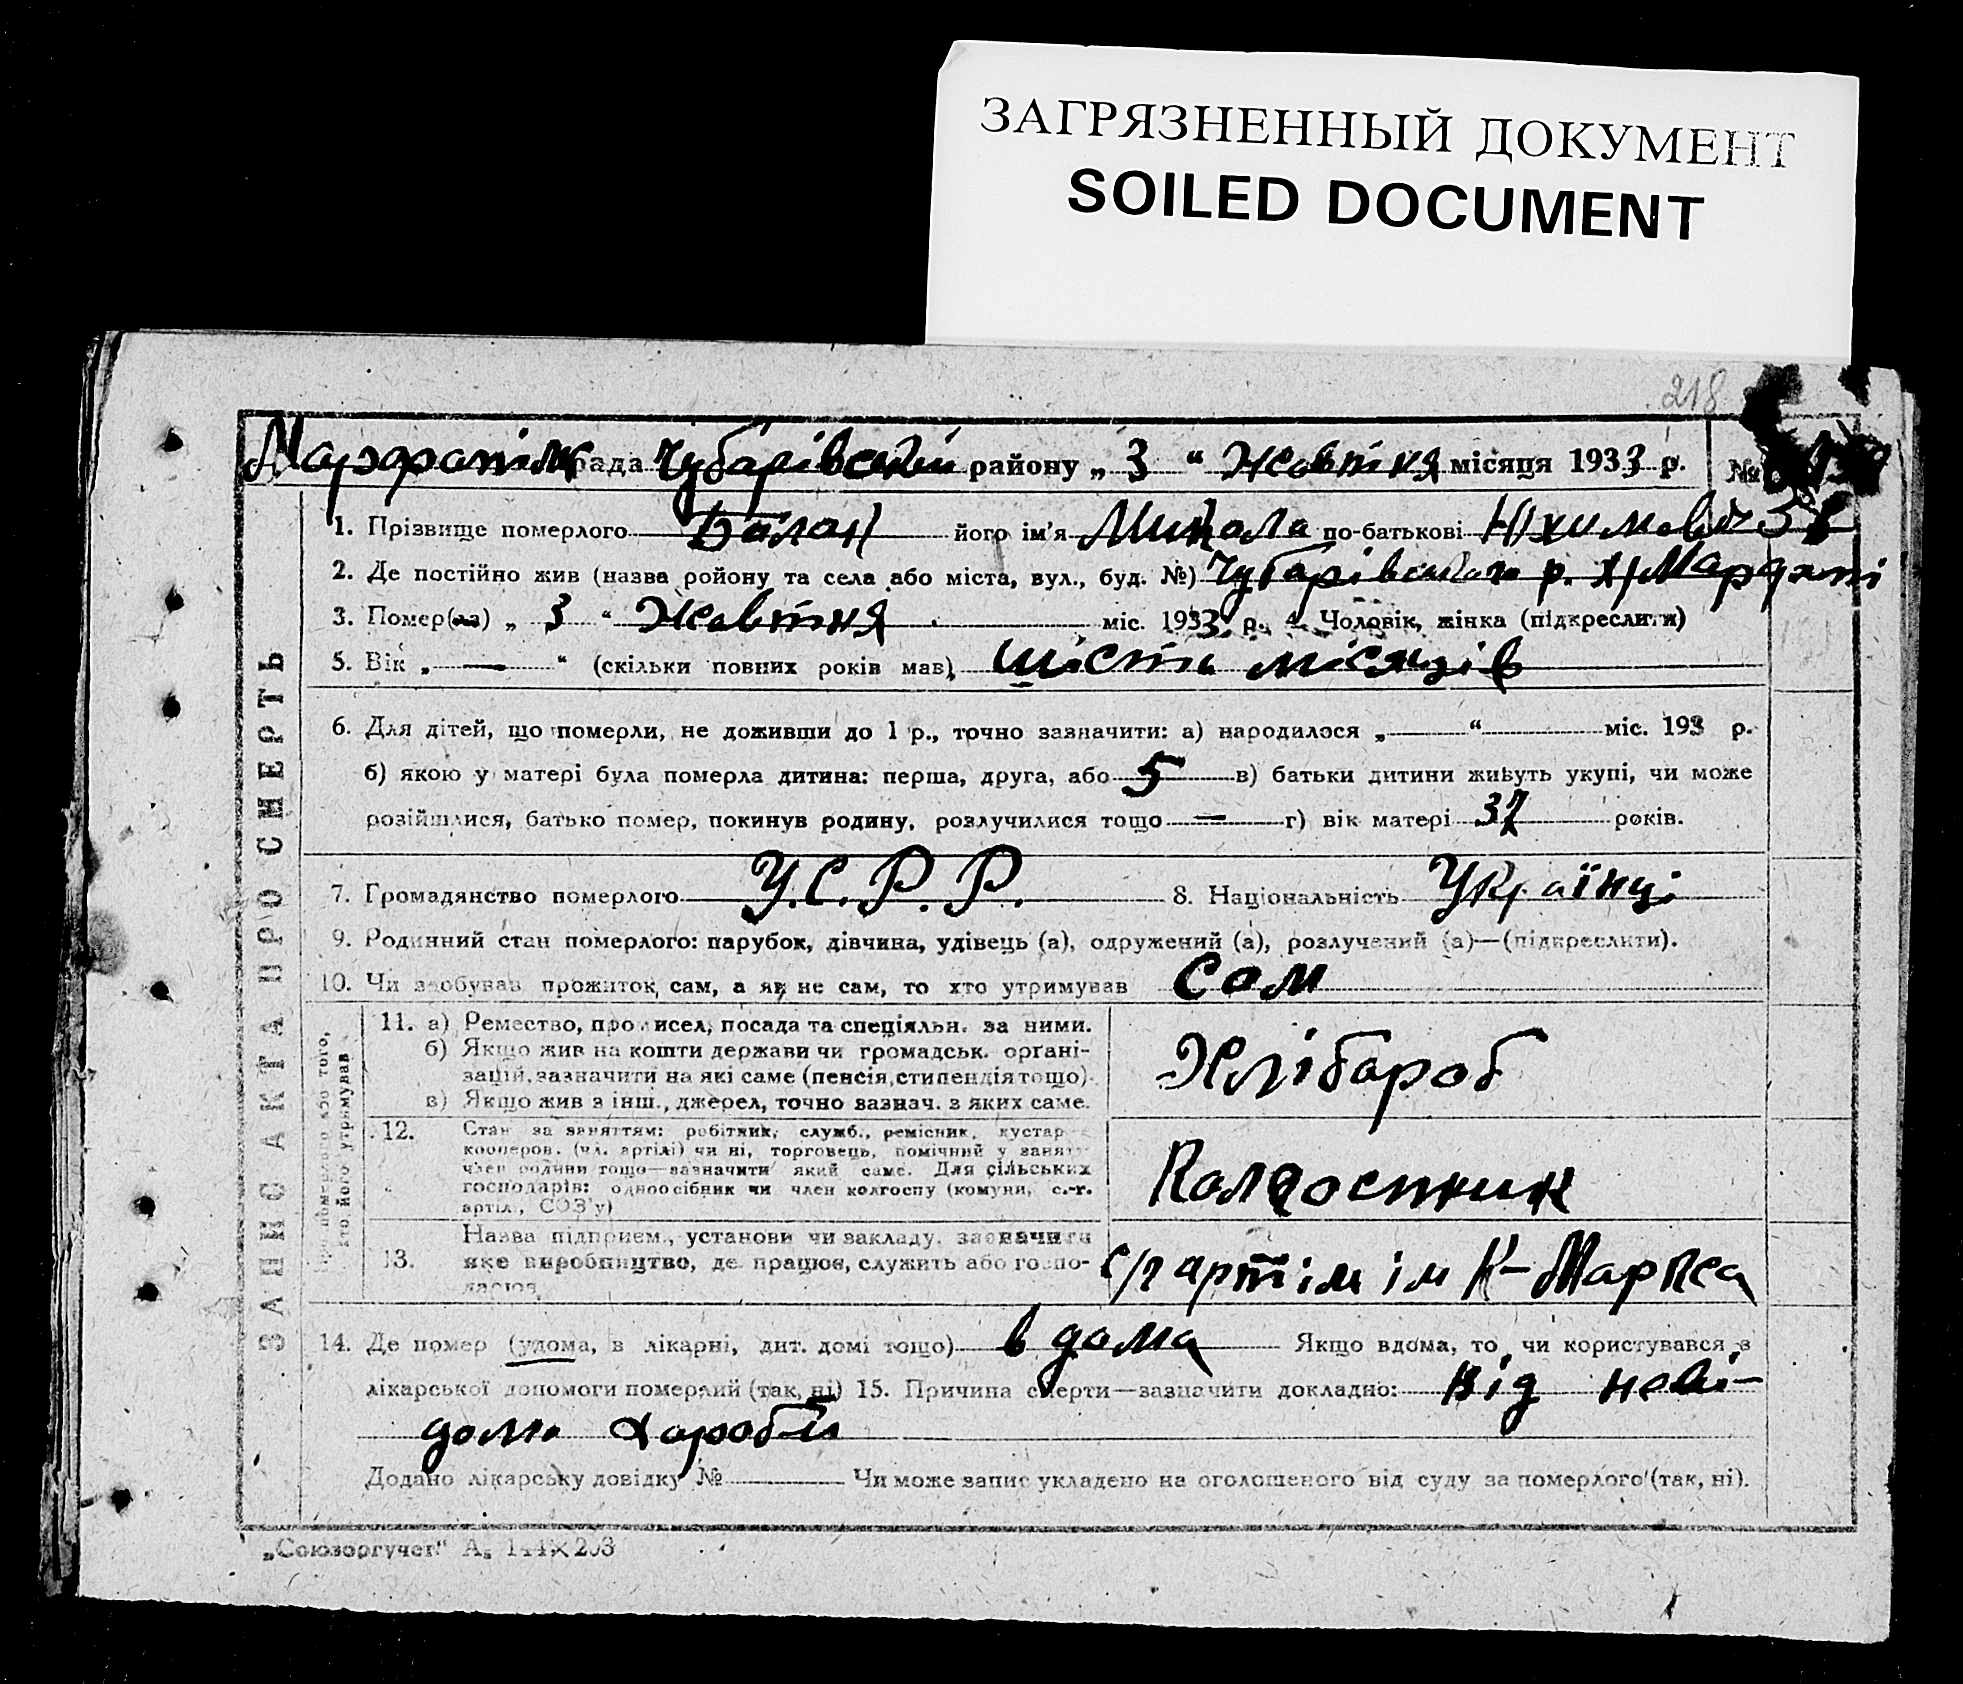 ЗАГРЯЗНЕННЫЙ ДОКУМЕНТ
SOILED DOCUMENT
218
рада Чубарівський району „ 3 “ Жовтня місяця 1933 р. №
1. Прізвище померлого Балан його ім'я Микола по-батькові Юхимович
2. Де постійно жив (назва ройону та села або міста, вул., буд. №) Чубарівського р.
3. Помер(ла) „ 3 “ Жовтня міс. 1933 р. 4. Чоловік, жінка (підкреслити)
5. Вік „ — “ (скільки повних років мав) шість місяців
6. Для дітей, що померли, не доживши до 1 р., точно зазначити: а) народилося „ “ міс. 193 р.
б) якою у матері була померла дитина: перша, друга, або 5 в) батьки дитини живуть укупі, чи може
розійшлися, батько помер, покинув родину, розлучилися тощо — г) вік матері 37 років.
7. Громадянство померлого У.С.Р.Р. 8. Національність Українці
9. Родинний стан померлого: парубок, дівчина, удівець (а), одружений (а), розлучений (а)—(підкреслити).
10. Чи здобував прожиток сам, а як не сам, то хто утримував сам
ЗАПИС АКТА ПРО СМЕРТЬ
кто його утримував
11. а) Ремество, промисел, посада та спеціяльн. за ними.
б) Якщо жив на кошти держави чи громадськ. орґані-
зацій, зазначити на які саме (пенсія, стипендія тощо).
в) Якщо жив з інш., джерел, точно зазнач. з яких саме.
Хлібароб
12. Стан за заняттям: робітник, служб., ремісник, кустар
кооперов. (чл. артілі) чи ні, торговець, помічний у занят
член родини тощо—зазначити який саме. Для сільських
господарів: одноосібник чи член колгоспу (комуни, с.-г.
артіл., СОЗ'у)
Колгоспник
13. Назва підприєм., установи чи закладу. зазначити
яке виробництво, де працює, служить або госпо-
дарює
с/г артіль ім К-Маркса
14. Де помер (удома, в лікарні, дит. домі тощо) в дома Якщо вдома, то чи користувався з
лікарської допомоги померлий (так, ні) 15. Причина смерти—зазначити докладно: Від неві-
доми хароби
Додано лікарську довідку № Чи може запис укладено на оголошеного від суду за померлого (так, ні).
„Союзоргучет"